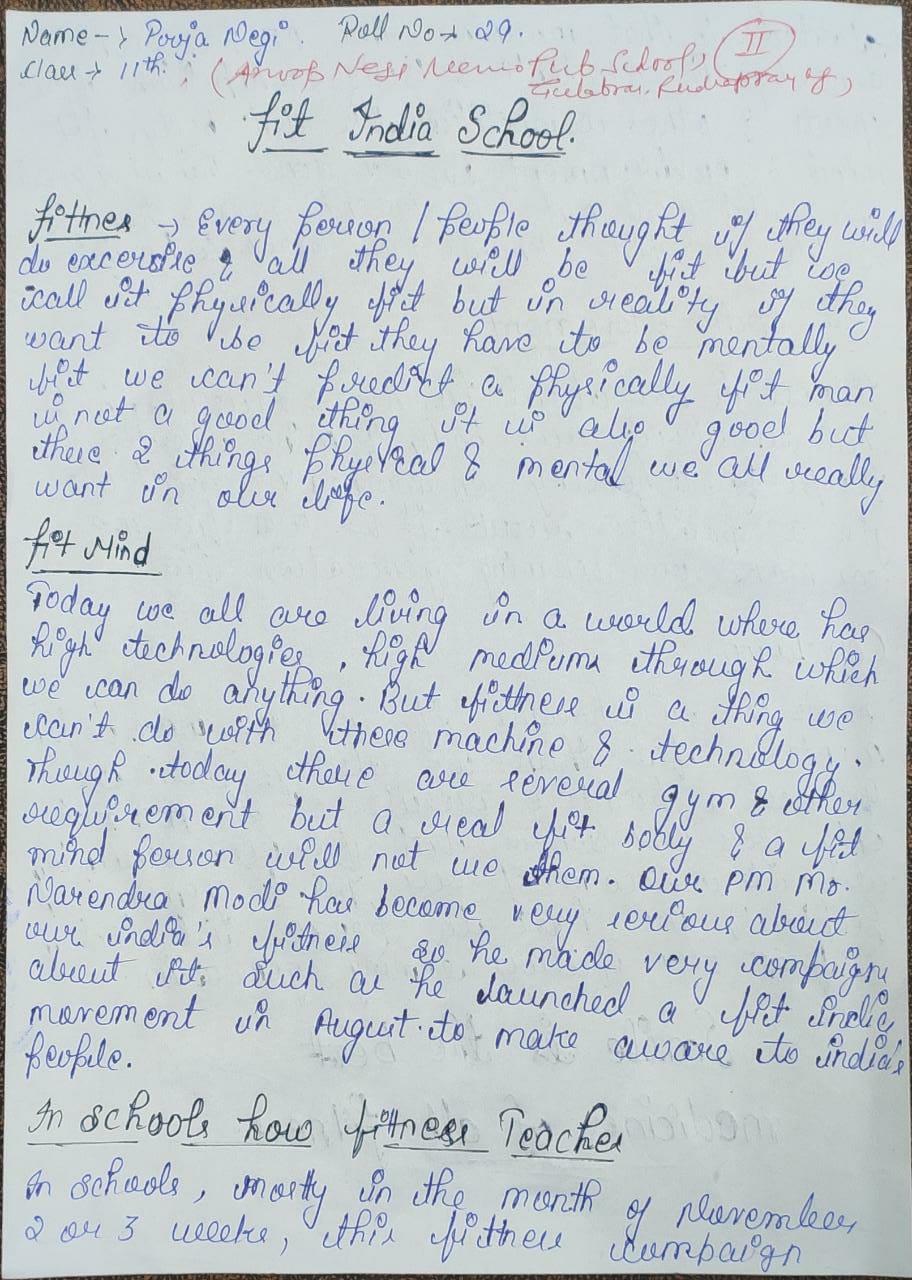 Name → Pooja Negi. Roll No → 29.
Class → 11th. (Anoop Negi Memo Pub School, II
Gulabrai, Rudraprayag,
Fit India School.
fittnes → Every person / people thought if they will
do excersise & all they will be fit but we
call it physically fit but in reality if they
want to be fit they have to be mentally
fit we can't predict a physically fit man
is not a good thing it is also good but
these 2 things physical & mental we all really
want in our life.
fit Mind
Today we all are living in a world where has
high technologies, high mediums through which
we can do anything. But fittness is a thing we
can't do with these machine & technology.
Though today there are several gym & other
requirement but a real fit body & a fit
mind person will not use them. Our PM Mr.
Narendra Modi has become very serious about
our india's fitness so he made very compaign
about it. Such as he launched a fit india
movement in August to make aware to india's
people.
In schools how fittness Teaches
In schools, mostly in the month of November
2 or 3 weeks, this fittness compaign